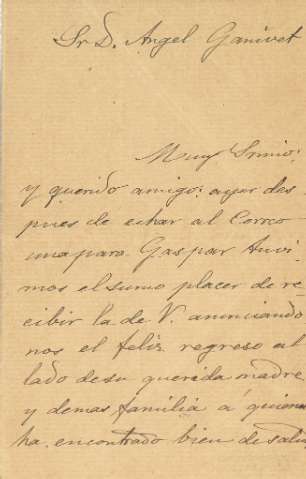 Sr D. Angel Ganivet
Muy Sr mio:
y querido amigo: ayer des
pues de echar al Correo
una para Gaspar tuvi
mos el sumo placer de re
cibir la de V. anunciando
nos el feliz regreso al
lado de su querida madre
y demas familia á quienes
ha encontrado bien de salu